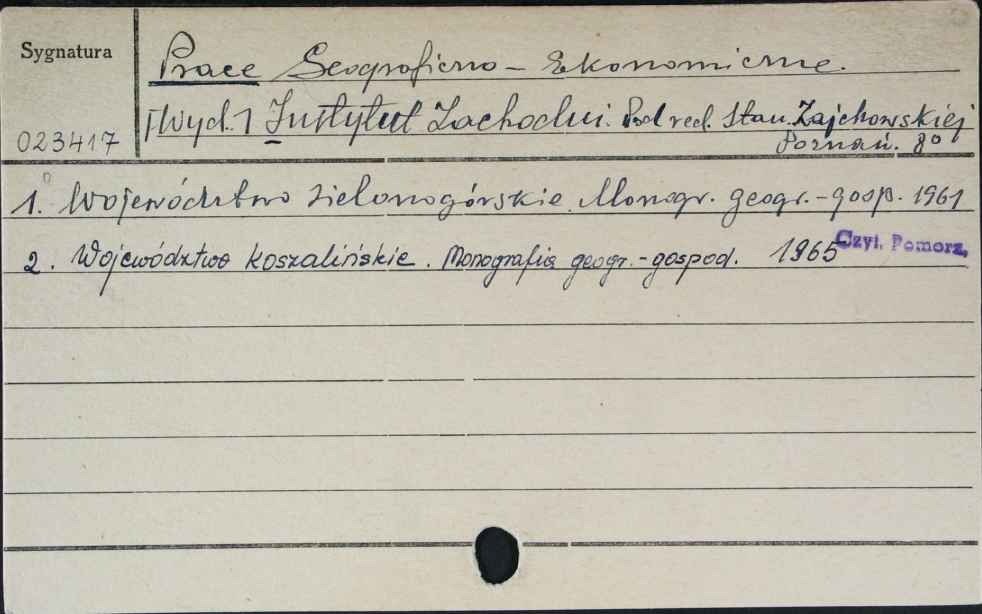 Sygnatura
Prace Geograficzno - Ekonomiczne.
[Wyd.] Instytut Zachodni. Pod red. Stan. Zajchowskiej
023417
Poznań. 8°
1. Województwo zielonogórskie. Monogr. geogr.-gosp. 1961
2. Województwo koszalińskie. Monografia geogr.-gospod. 1965 Czyt. Pomorz.